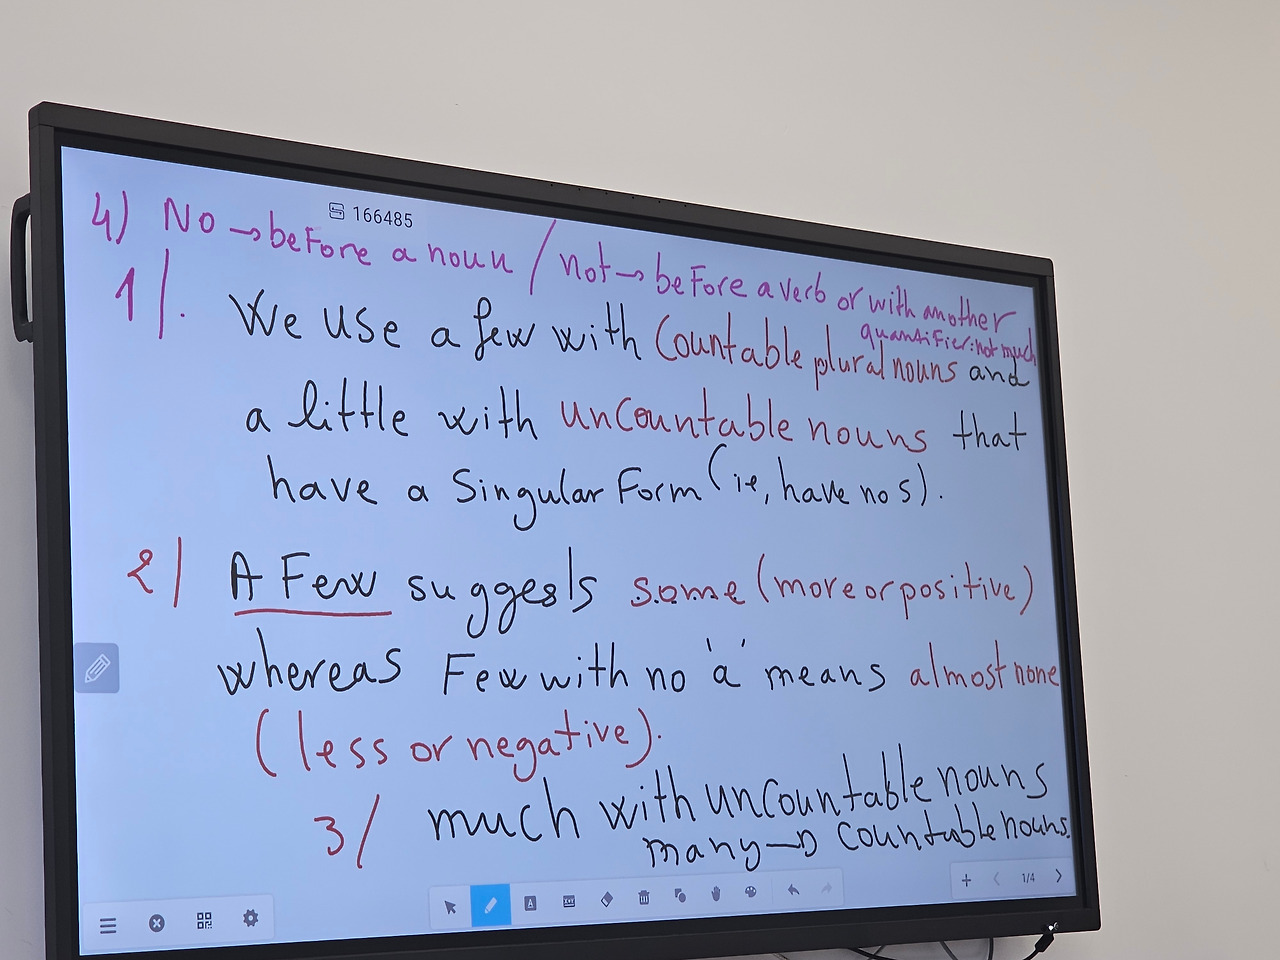 166485
4) No → before a noun / not → before a verb or with another
quantifier: not much
1/. We use a few with Countable plural nouns and
a little with uncountable nouns that
have a Singular Form (ie, have no s).
2/ A Few suggests some (more or positive)
whereas Few with no 'a' means almost none
(less or negative).
3/ much with uncountable nouns
many → countable nouns.
1/4